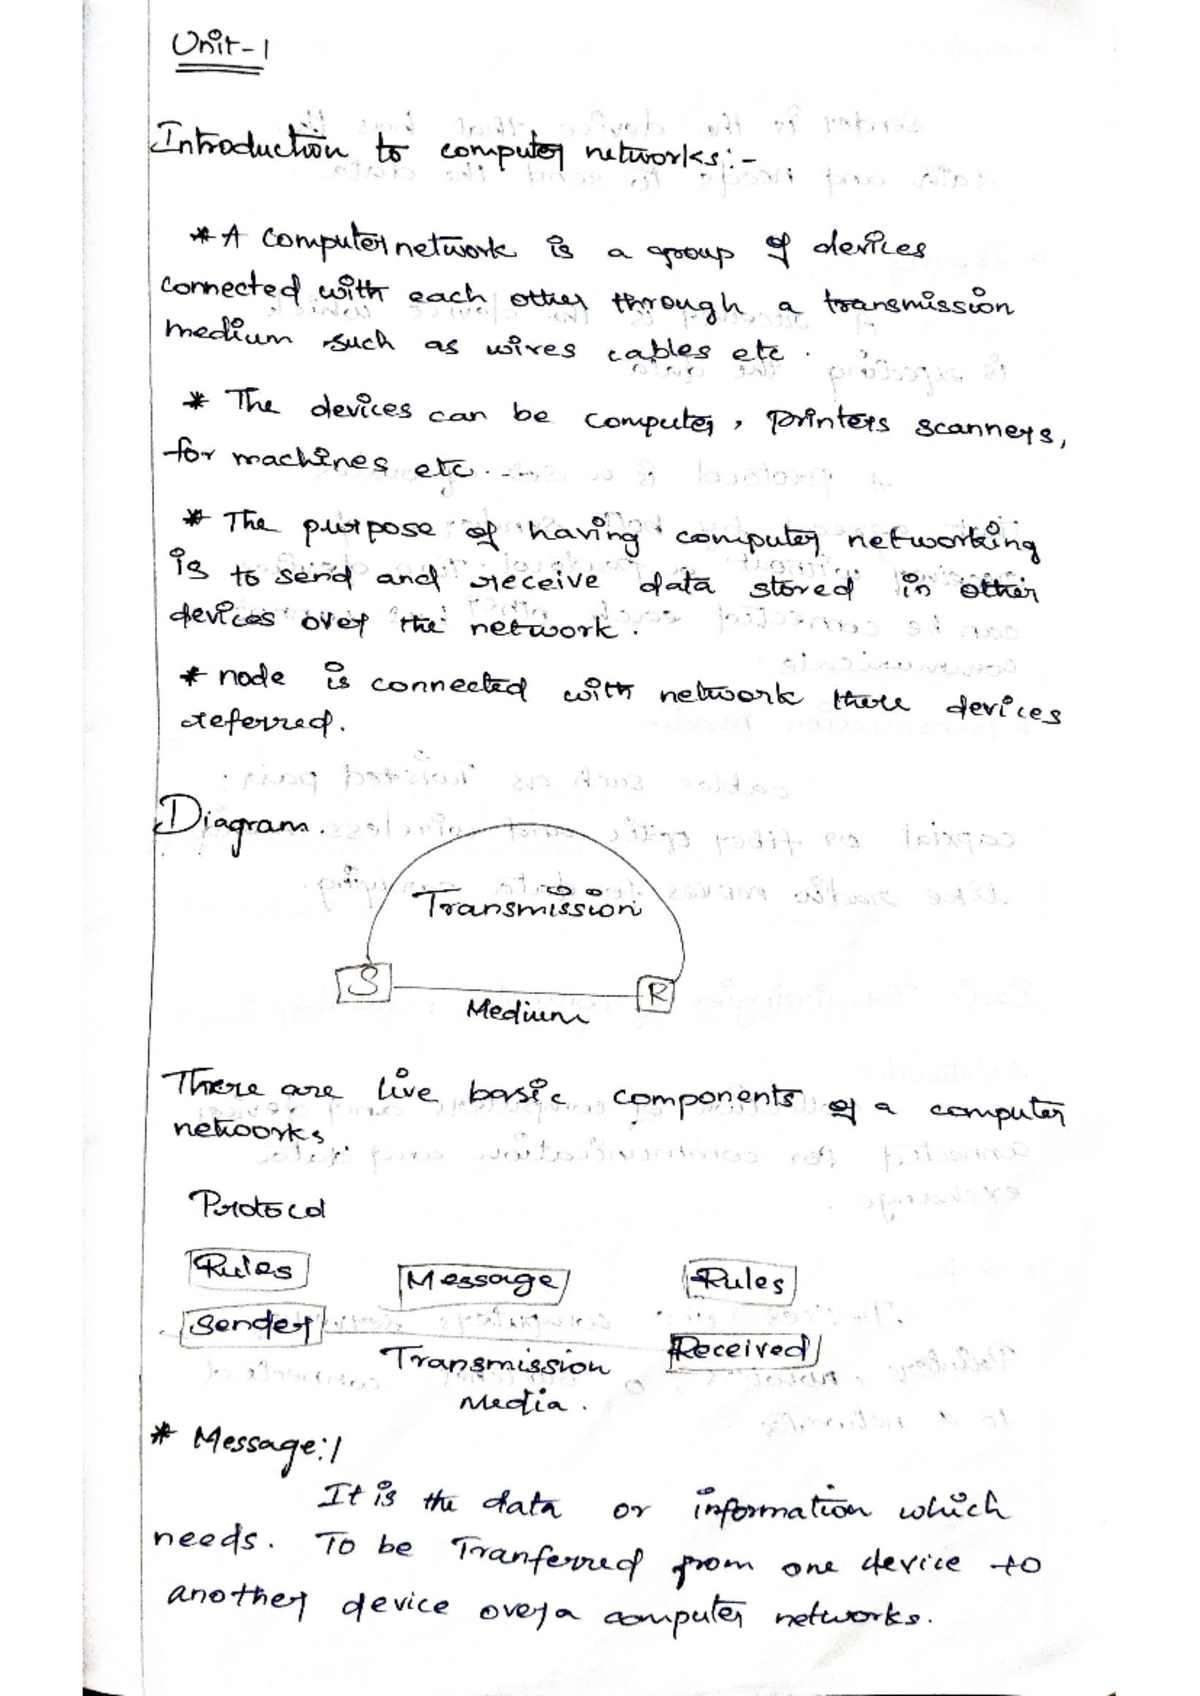 Unit-1
Introduction to computer networks:-
* A computer network is a group of devices
connected with each other through a transmission
medium such as wires cables etc.
* The devices can be computer, printers scanners,
for machines etc....
* The purpose of having computer networking
is to send and receive data stored in other
devices over the network.
* node is connected with network there devices
referred.
Diagram.
Transmission
S
R
Medium
There are live basic components of a computer
networks.
Protocol
Rules
Message
Rules
Sender
Received
Transmission
Media.
* Message:/
It is the data or information which
needs. To be Tranferred from one device to
another device over a computer networks.